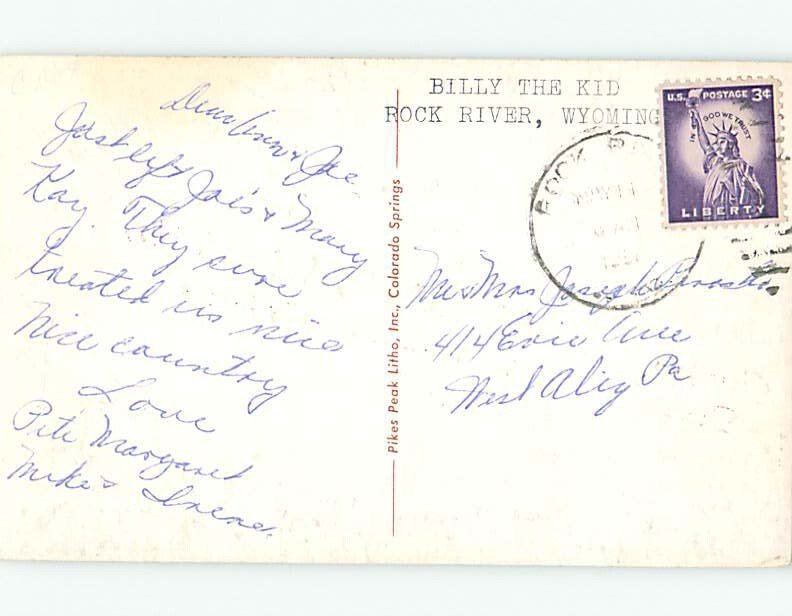 Dear Ann & Joe.
Just left Joe's & Mary
Kay. They sure
treated us nice
Nice country
Love
Pete Margaret
Mike & Irene.
Pikes Peak Litho, Inc., Colorado Springs
BILLY THE KID
ROCK RIVER, WYOMING
U.S. POSTAGE 3¢
IN GOD WE TRUST
LIBERTY
ROCK
Mr & Mrs Joseph
414 Erie Ave
West Aliq Pa